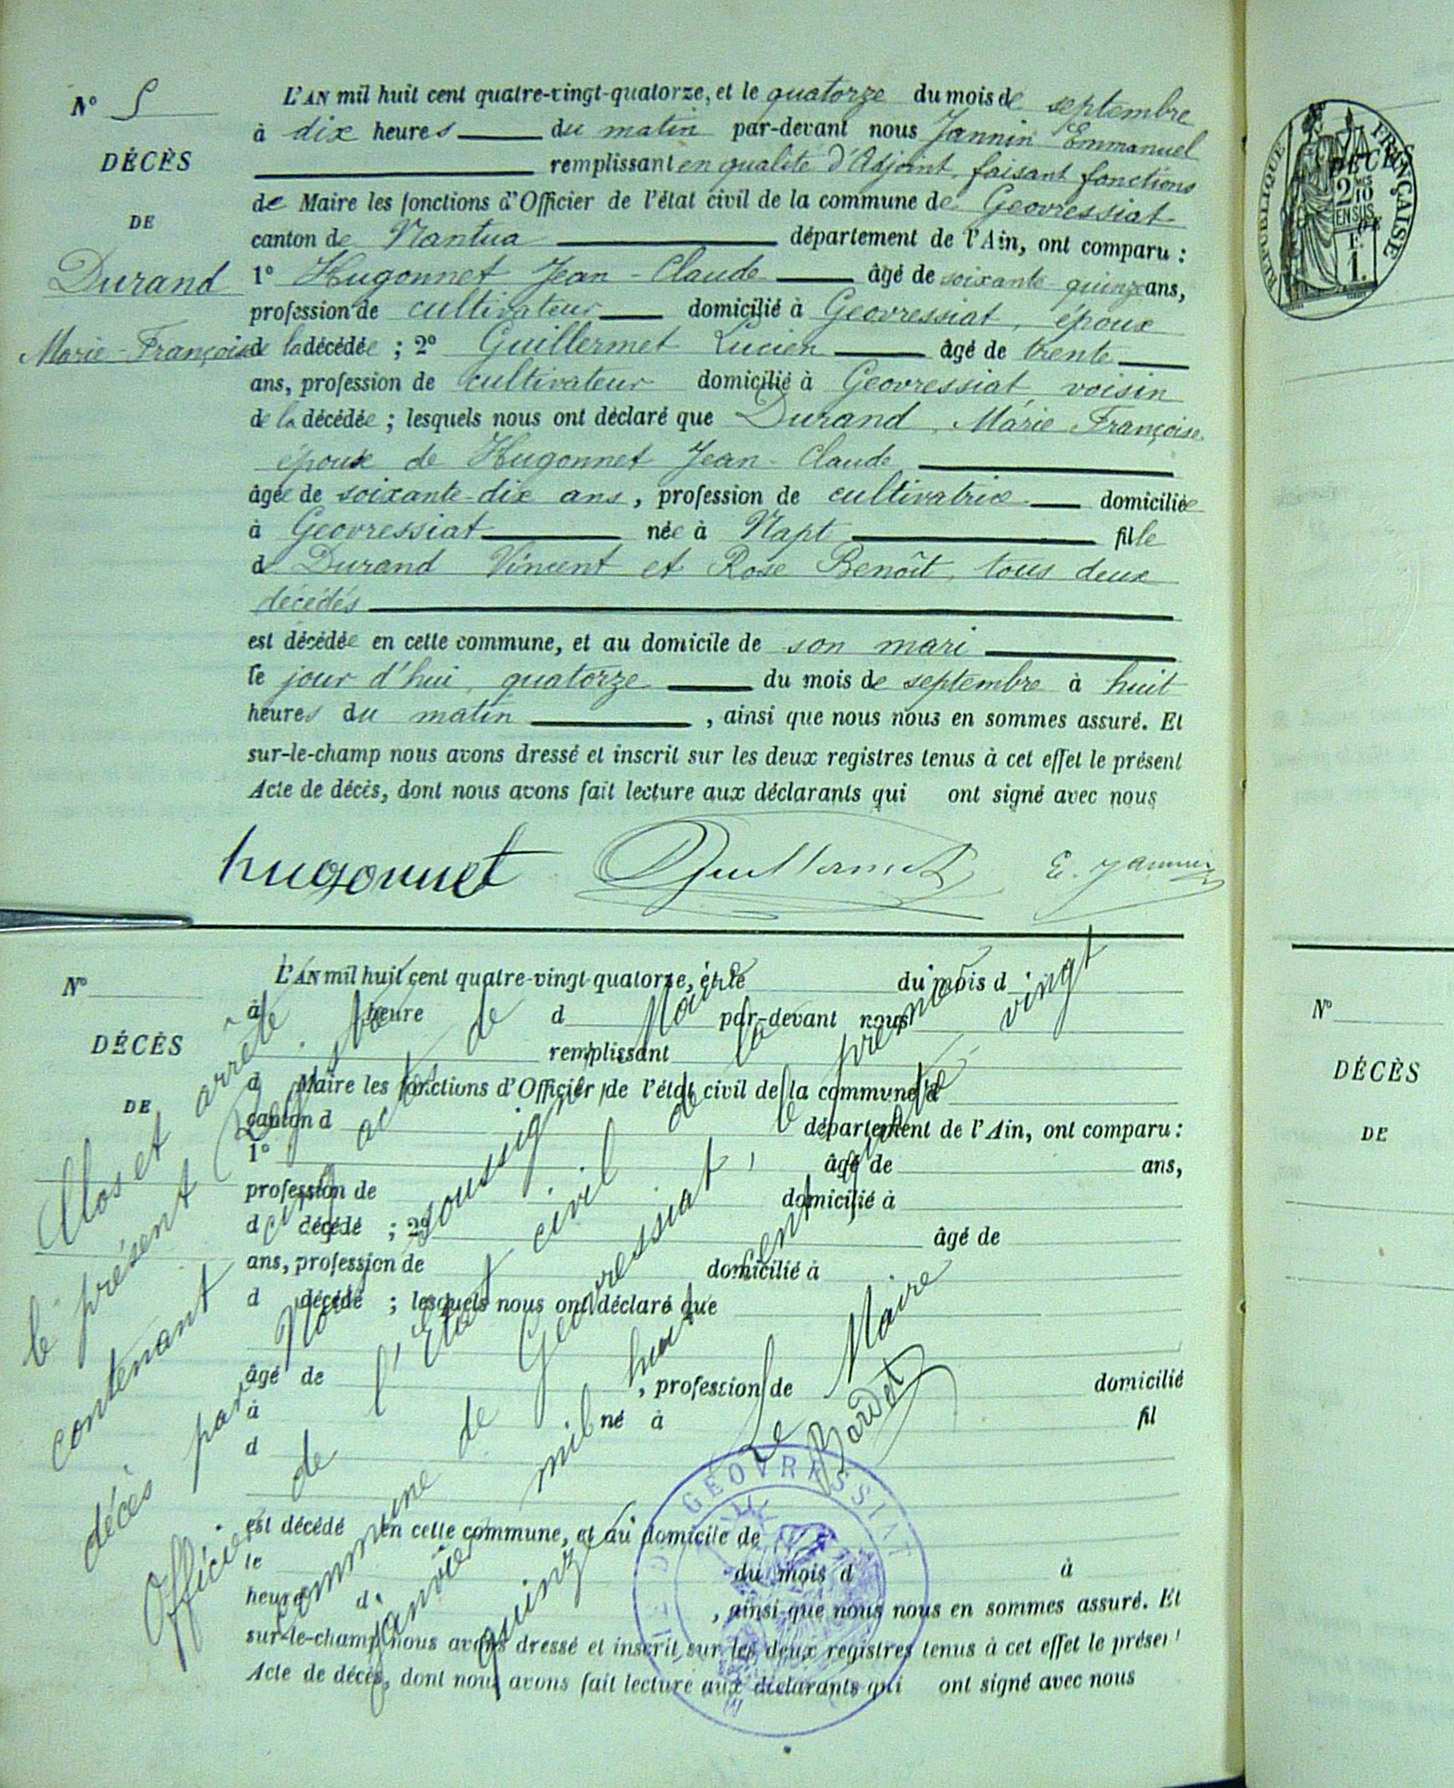 N° 5
DÉCÈS
DE
Durand
Marie-Françoise
L'AN mil huit cent quatre-vingt-quatorze, et le quatorze du mois de septembre
à dix heures du matin par-devant nous Jannin Emmanuel
remplissant en qualité d'Adjoint, faisant fonctions
de Maire les fonctions d'Officier de l'état civil de la commune de Geovressiat
canton de Nantua département de l'Ain, ont comparu :
1° Hugonnet Jean-Claude âgé de soixante quinze ans,
profession de cultivateur domicilié à Geovressiat, époux
de la décédée ; 2° Guillermet Lucien âgé de trente
ans, profession de cultivateur domicilié à Geovressiat, voisin
de la décédée ; lesquels nous ont déclaré que Durand, Marie Françoise
épouse de Hugonnet Jean-Claude
âgée de soixante-dix ans, profession de cultivatrice domiciliée
à Geovressiat née à Napt fille
d Durand Vincent et Rose Benoît, tous deux
décédés
est décédée en cette commune, et au domicile de son mari
le jour d'hui, quatorze du mois de septembre à huit
heures du matin , ainsi que nous nous en sommes assuré. Et
sur-le-champ nous avons dressé et inscrit sur les deux registres tenus à cet effet le présent
Acte de décès, dont nous avons fait lecture aux déclarants qui ont signé avec nous
hugonnet Guillermet E. Jannin
N°
DÉCÈS
DE
L'AN mil huit cent quatre-vingt-quatorze, et le du mois d
à heure d par-devant nous
remplissant
d Maire les fonctions d'Officier de l'état civil de la commune d
canton d département de l'Ain, ont comparu :
1° âgé de ans,
profession de domicilié à
d décédé ; 2° âgé de
ans, profession de domicilié à
d décédé ; lesquels nous ont déclaré que
âgé de , profession de domicilié
à né à fil
d
est décédé en cette commune, et au domicile de
le du mois d à
heure d , ainsi que nous nous en sommes assuré. Et
sur-le-champ nous avons dressé et inscrit sur les deux registres tenus à cet effet le présent
Acte de décès, dont nous avons fait lecture aux déclarants qui ont signé avec nous
Clos et arrêté
le présent Registre
contenant cinq actes de
décès par Nous soussigné, Maire
Officier de l'Etat civil de la
commune de Geovressiat, le premier vingt
janvier mil huit cent quatre
quinze
Le Maire
Bardet
GÉOVRESSIAT
RÉPUBLIQUE FRANÇAISE
2/10
EN SUS
1.
N°
DÉCÈS
DE